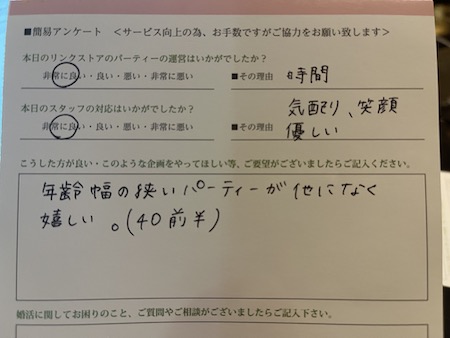 ■簡易アンケート　＜サービス向上の為、お手数ですがご協力をお願い致します＞
本日のリンクストアのパーティーの運営はいかがでしたか？
非常に良い・良い・悪い・非常に悪い　■その理由　時間
本日のスタッフの対応はいかがでしたか？　気配り、笑顔
非常に良い・良い・悪い・非常に悪い　■その理由　優しい
こうした方が良い・このような企画をやってほしい等、ご要望がございましたらご記入ください。
年齢幅の狭いパーティーが他になく
嬉しい。(40前半)
婚活に関してお困りのこと、ご質問やご相談がございましたらご記入下さい。